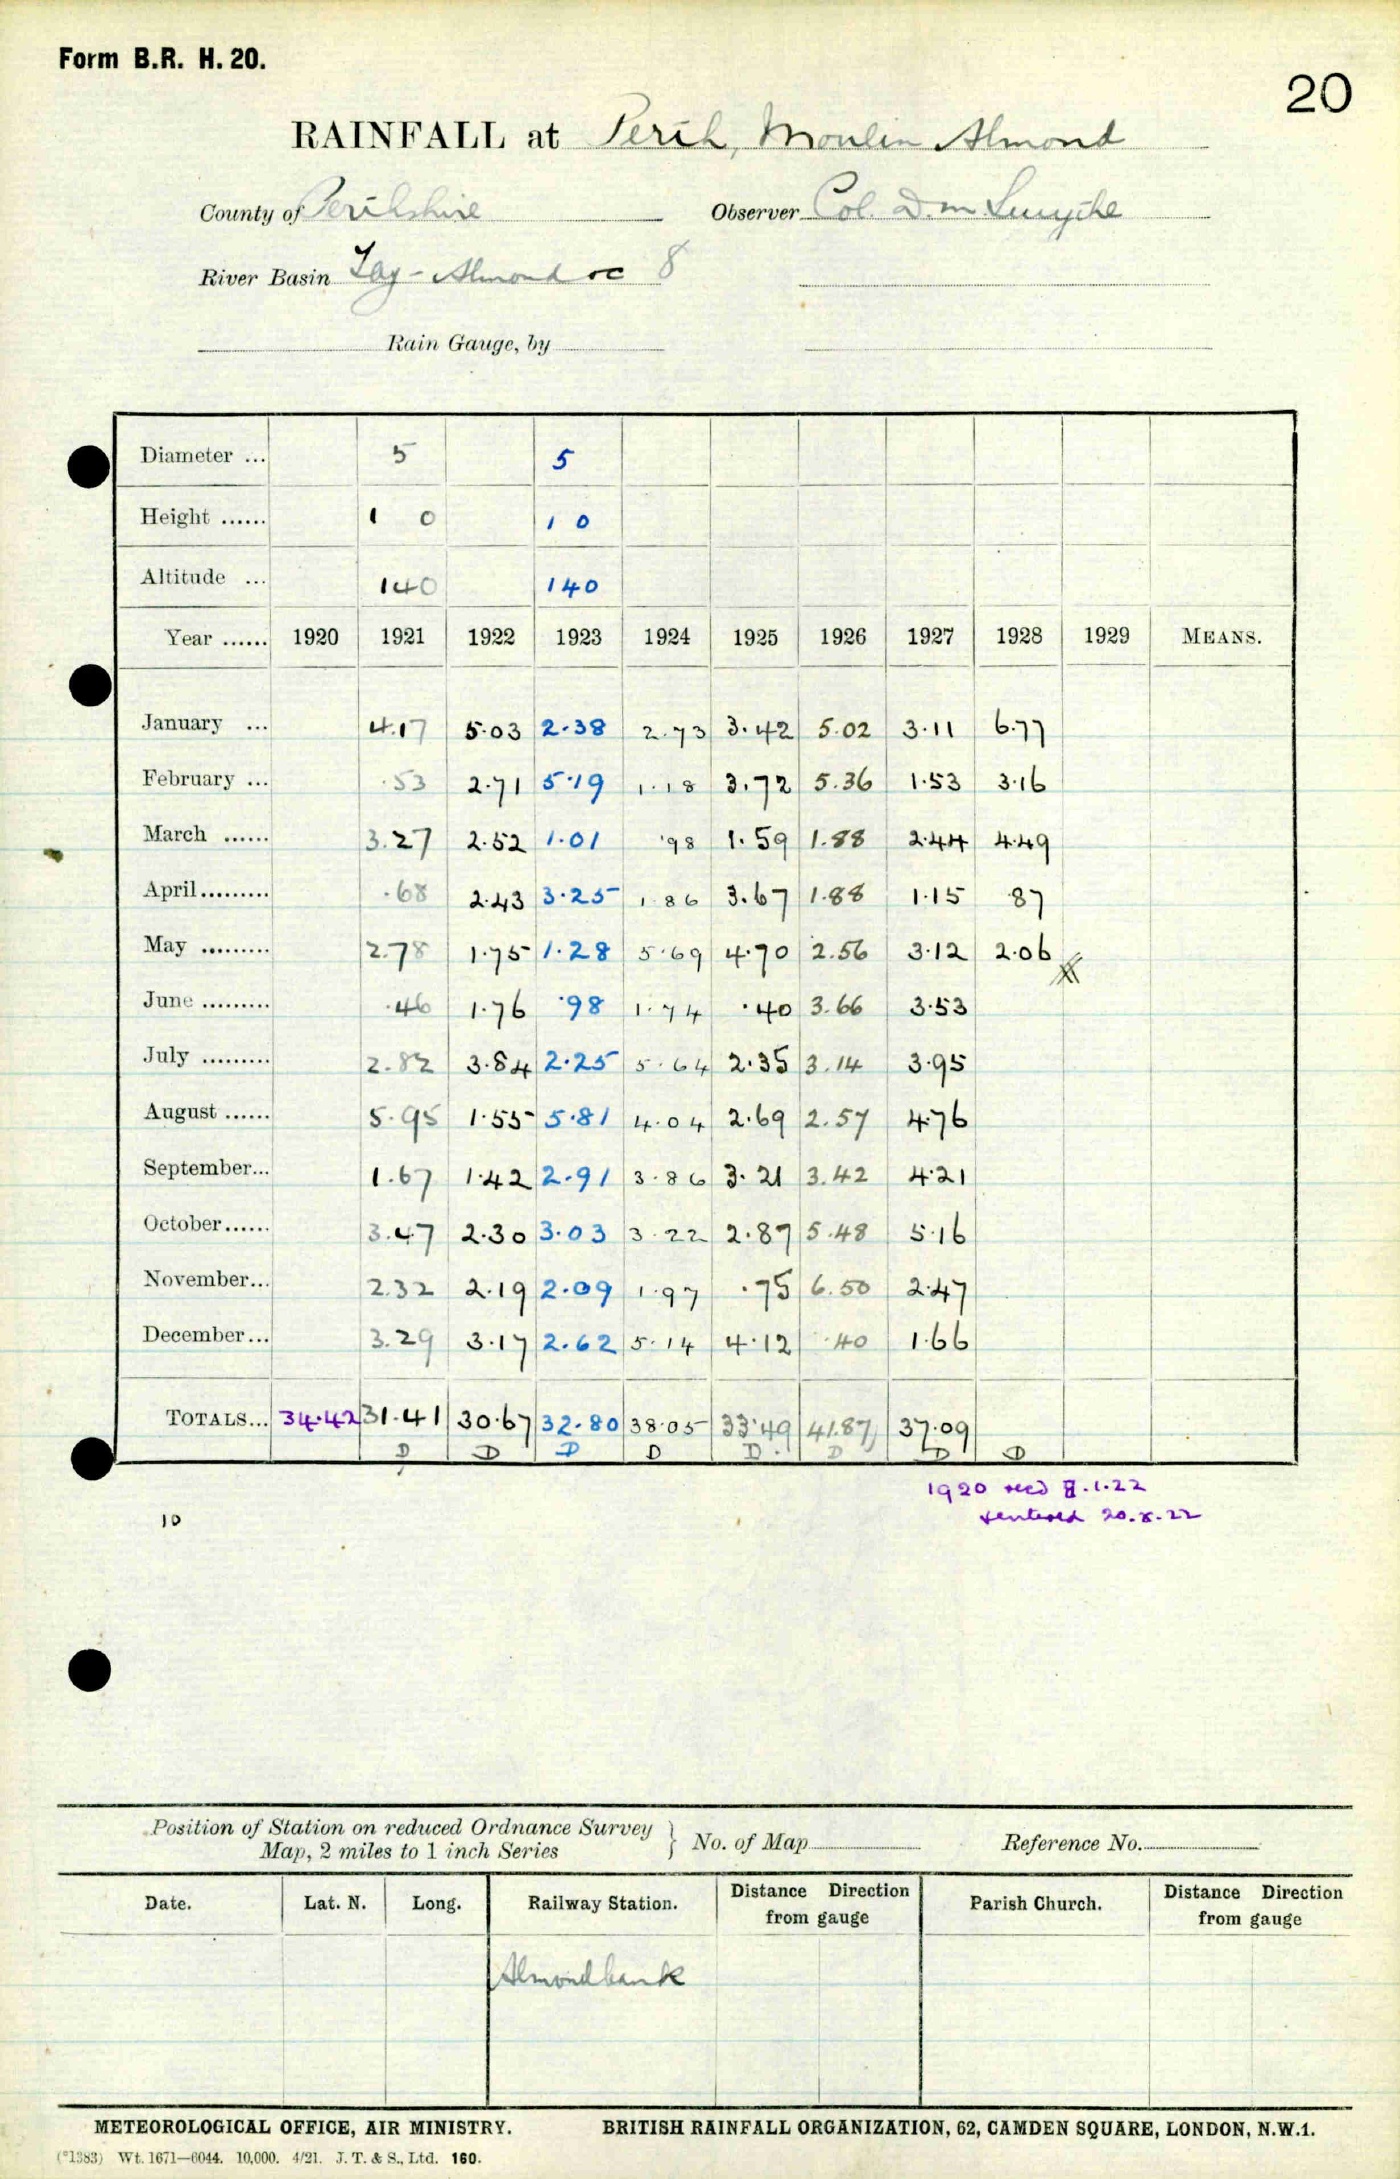 Form B.R. H. 20.
20
RAINFALL at Perth, Moulin Almond
County of Perthshire Observer Col. D. M. Smythe
River Basin Tay - Almond oc 8
Rain Gauge, by
Diameter ... 5 5
Height ...... 1 0 1 0
Altitude ... 140 140
Year ...... 1920 1921 1922 1923 1924 1925 1926 1927 1928 1929 MEANS.
January ... 4.17 5.03 2.38 2.73 3.42 5.02 3.11 6.77
February ... .53 2.71 5.19 1.18 3.72 5.36 1.53 3.16
March ...... 3.27 2.52 1.01 .98 1.59 1.88 2.44 4.49
April......... .68 2.43 3.25 1.86 3.67 1.88 1.15 .87
May ......... 2.78 1.75 1.28 5.69 4.70 2.56 3.12 2.06
June ......... .46 1.76 .98 1.74 .40 3.66 3.53
July ......... 2.82 3.84 2.25 5.64 2.35 3.14 3.95
August ...... 5.95 1.55 5.81 4.04 2.69 2.57 4.76
September... 1.67 1.42 2.91 3.86 3.21 3.42 4.21
October...... 3.47 2.30 3.03 3.22 2.87 5.48 5.16
November... 2.32 2.19 2.09 1.97 .75 6.50 2.47
December... 3.29 3.17 2.62 5.14 4.12 .40 1.66
TOTALS... 34.42 31.41 30.67 32.80 38.05 33.49 41.87 37.09
D D D D D D D D
1920 recd .1.22
entered 20.x.22
10
Position of Station on reduced Ordnance Survey
Map, 2 miles to 1 inch Series } No. of Map Reference No.
Date. Lat. N. Long. Railway Station. Distance Direction from gauge Parish Church. Distance Direction from gauge
Almondbank
METEOROLOGICAL OFFICE, AIR MINISTRY. BRITISH RAINFALL ORGANIZATION, 62, CAMDEN SQUARE, LONDON, N.W.1.
(*1383) Wt. 1671—6044. 10,000. 4/21. J. T. & S., Ltd. 160.